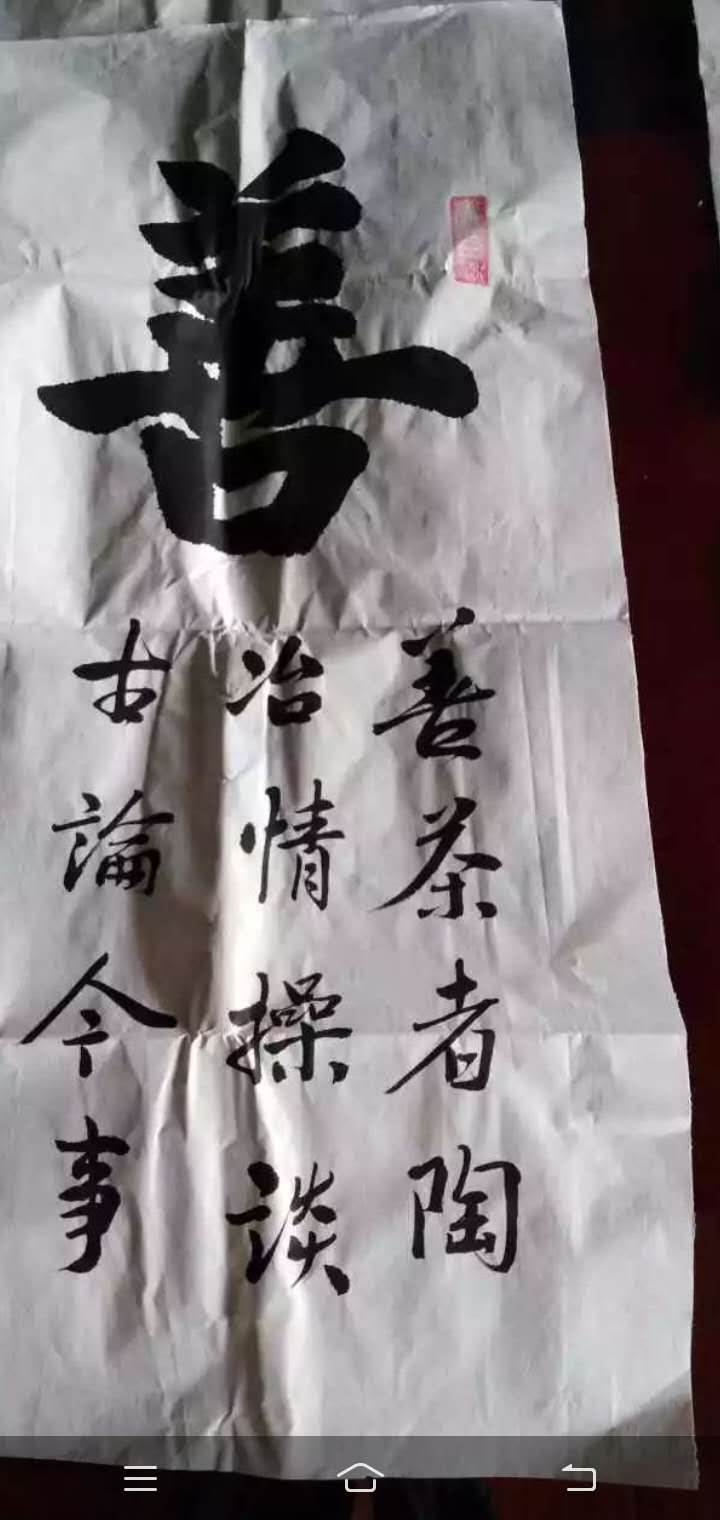 善
善茶者陶
冶情操談
古論今事